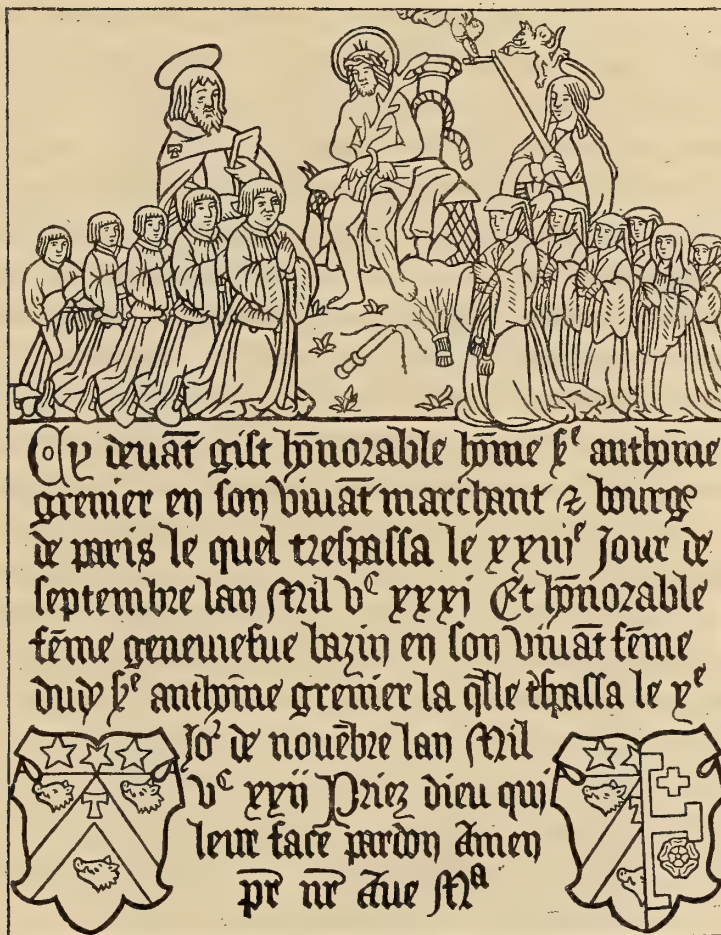 Cy deuāt gist hōnorable hōme sᵉ anthoine
grenier en son viuāt marchant & bourgs
de paris le quel trespassa le xxiiiᵉ Jour de
septembre lan Mil vᶜ xxxi Et hōnorable
fēme geneuiefue bazin en son viuāt fēme
dudy sᵉ anthoine grenier la q̄lle t̄spassa le xᵉ
Joʳ de nouēbre lan Mil
vᶜ xxii Priez dieu qui
leur face pardon Amen
pr̄ nr̄ Aue Mᵃ